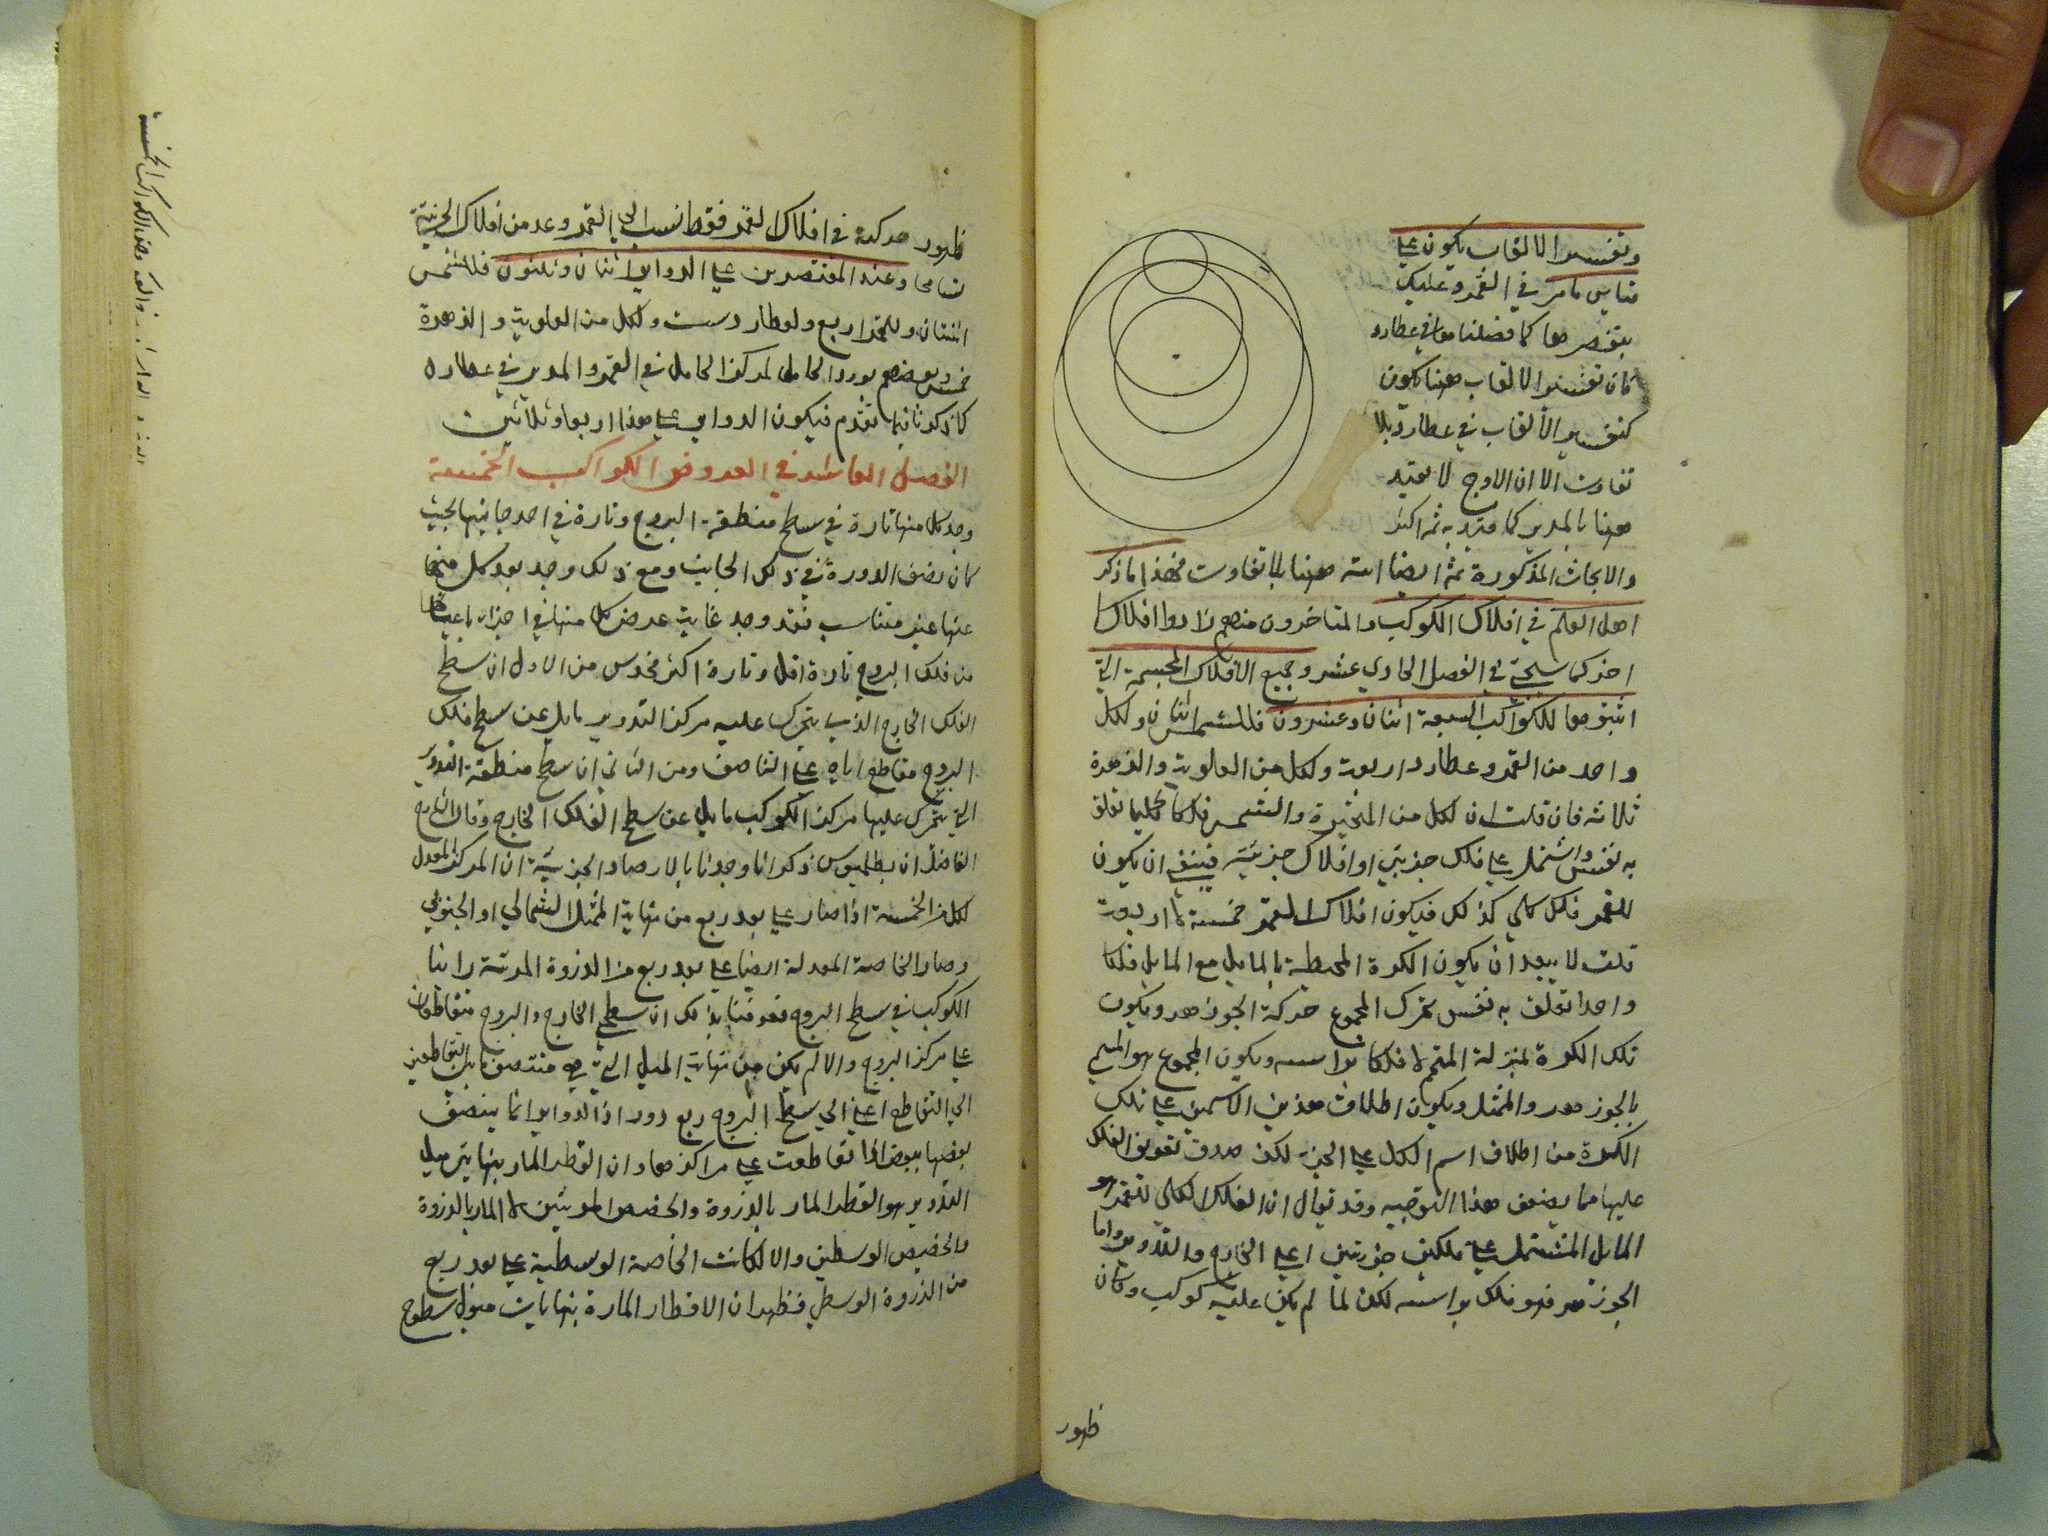 وتفسير الالقاب يكون على
قياس ما مر في القمر وعليك
كان تفسير الالقاب ههنا يكون
كتفسير الألقاب في عطارد بلا
تفاوت الا ان الاوج لا يقيد
ههنا بالمدير كما قيد به ثم اكثر
والابحاث المذكورة ثمه ايضا اتية ههنا بلا تفاوت فهذا ما ذكر
اهل العلم في افلاك الكوكب والمتاخرون منهم زادوا افلاكا
اخر كما سيجئ في الفصل الحادي عشر وجميع الافلاك المجسمة التي
اثبتوها للكواكب السبعة اثنان وعشرون فللشمس اثنان ولكل
واحد من القمر وعطارد اربعة ولكل من العلوية والزهرة
ثلاثه فان قلت ان لكل من المتحيرة والشمس فلكا كليا تعلق
به نفس واشتمل على فلك جزئي او افلاك جزئية فينبغي ان يكون
للقمر فلك كلي كذلك فيكون افلاك القمر خمسة لا اربعة
قلت لا يبعد ان يكون الكرة المحيطة بالمايل مع المايل فلكا
واحدا تعلق به نفس تحرك المجموع حركة الجوزهر ويكون
تلك الكرة بمنزلة المتمم لا فلكا براسه ويكون المجموع هو المسمى
بالجوزهر والممثل ويكون اطلاق هذين الاسمين على تلك
الكرة من اطلاق اسم الكل على الجزء لكن صدق تعريف الفلك
عليها مما يضعف هذا التوجيه وقد يقال ان الفلك الكلي للقمر هو
المايل المشتمل على فلكين جزئيين اعني الخارج والتدوير واما
الجوزهر فهو فلك براسه لكن لما لم يكن عليه كوكب وكان
ظهور
ظهور حركته في افلاك القمر فقط انسب الى القمر وعد من افلاكه الجزئية
وعند المقتصرين على الدواير اثنان وثلثون فللشمس
اثنتان وللقمر اربع ولعطارد ست ولكل من العلوية والزهرة
خمس وبعضهم يورد الحامل لمركز الحامل في القمر والمدير في عطارد
كما ذكرنا فيما تقدم فيكون الدواير على هذا اربعا وثلاثين
الفصل العاشر في العروض الكواكب الخمسة
وجد كل منها تارة في سطح منطقة البروج وتارة في احد جانبيها بحيث
كان نصف الدورة في ذلك الجانب ومع ذلك وجد بعد كل منها
عنها غير متناسب فقد وجد غاية عرض كل منها في اجزاء باعيانها
من فلك البروج تارة اقل وتارة اكثر فحدس من الاول ان سطح
الفلك الخارج الذي يتحرك عليه مركز التدوير مايل عن سطح فلك
البروج مقاطع اياه على التناصف ومن الثاني ان سطح منطقة التدوير
التي يتحرك عليها مركز الكوكب مايل عن سطح الفلك الخارج وقال الشارح
الفاضل ان بطلميوس ذكر انا وجدنا بالارصاد الجزئية ان المركز المعدل
لكل من الخمسة اذا صار على بعد ربع من نهاية الممثل الشمالي او الجنوبي
وصار الخاصة المعدلة ايضا على بعد ربع من الذروة المرئية راينا
الكوكب في سطح البروج فعرفنا بذلك ان سطحي الخارج والبروج متقاطعان
على مركز البروج والا لم يكن من نهاية الميل التي هي منتصف ما بين التقاطعين
الي التقاطع اعني الي سطح البروج ربع دور اذ الدواير انما ينصف
بعضها بعضا اذا تقاطعت على مراكزها وان القطر المار بنهايتي ميل
التدوير هو القطر المار بالذروة والحضيض المرئيتين لا المار بالذروة
والحضيض الوسطين والا لكانت الخاصة الوسطية على بعد ربع
من الذروة الوسطى فظهر ان الاقطار المارة بنهايات ميول سطوح